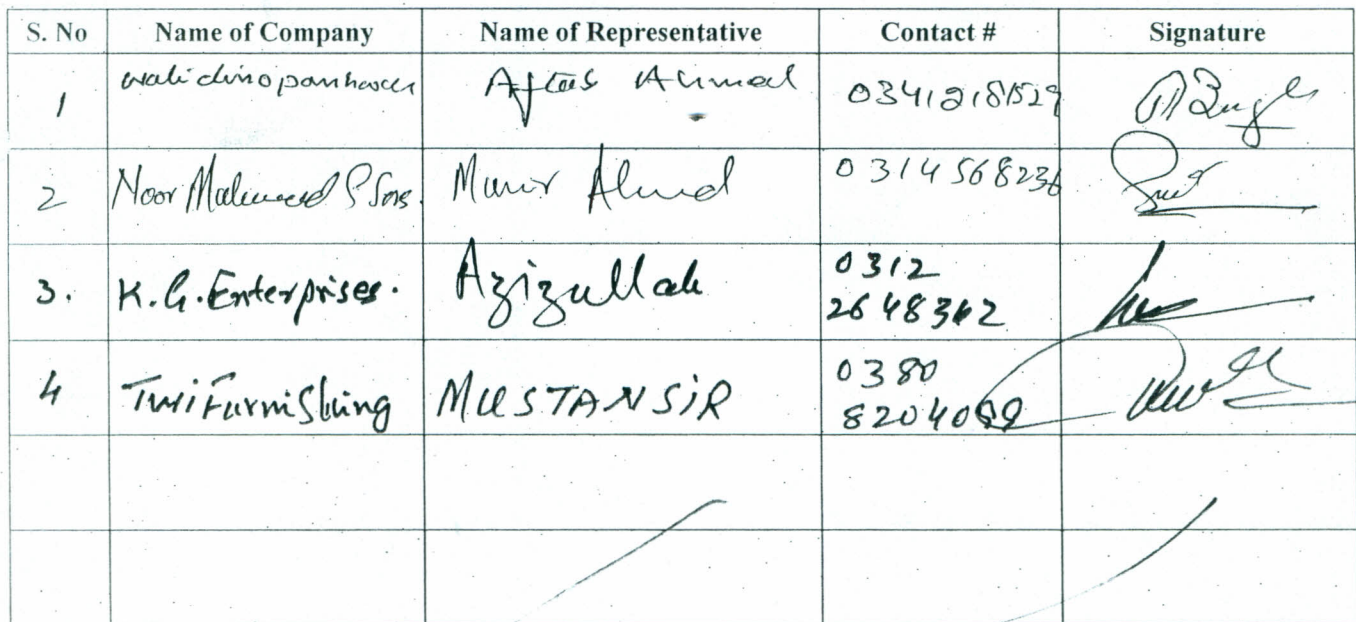 S. No Name of Company Name of Representative Contact # Signature
1 walidinopanhwer Aftab Ahmed 03412181529
2 Noor Muhammad & Sons. Munir Ahmed 0314568236
3. K.G. Enterprises. Azizullah 0312
2648362
4 Furnishing MUSTANSiR 0380